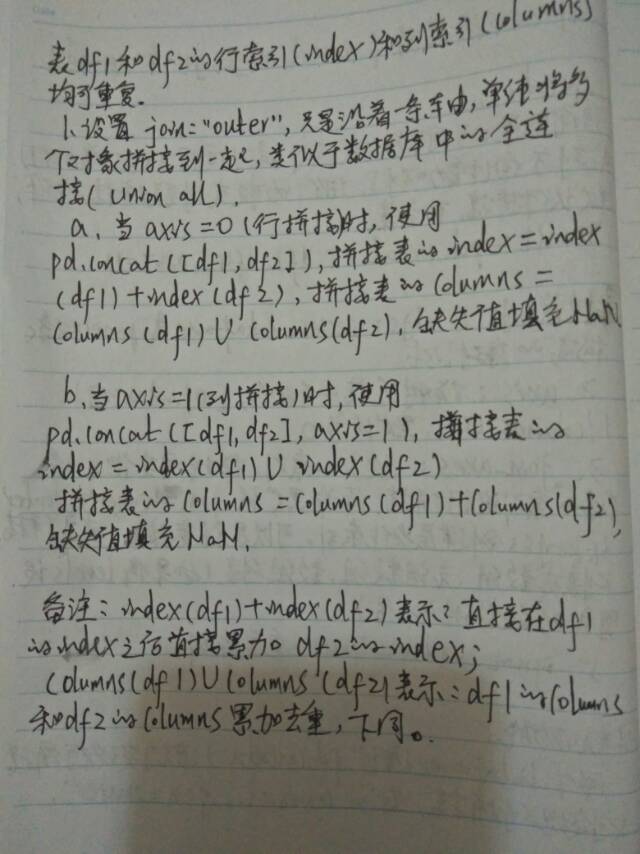 表df1和df2的行索引(index)和列索引(columns)
均可重复.
1.设置 join="outer", 只是沿着一条轴, 单纯将多
个对象拼接到一起, 类似于数据库中的全连
接(union all).
a. 当 axis=0(行拼接)时, 使用
pd.concat([df1,df2]), 拼接表的index=index
(df1)+index(df2), 拼接表的columns=
columns(df1)∪columns(df2), 缺失值填充NaN.
b.当axis=1(列拼接)时, 使用
pd.concat([df1,df2], axis=1), 拼接表的
index=index(df1)∪index(df2)
拼接表的columns=columns(df1)+columns(df2),
缺失值填充NaN.
备注: index(df1)+index(df2)表示: 直接在df1
的index之后直接累加 df2的index;
columns(df1)∪columns(df2)表示: df1的columns
和df2的columns累加去重, 下同。